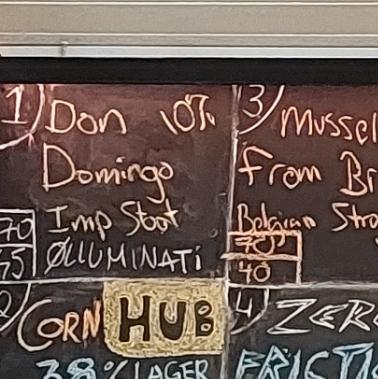 1) Don 10%
Domingo
Imp Stout
70
45 ØLLUMINATi
3) Mussel
From Br
Belgian Stro
70
40
2) CORN HUB
3.8% LAGER
4) ZER
FRICTI